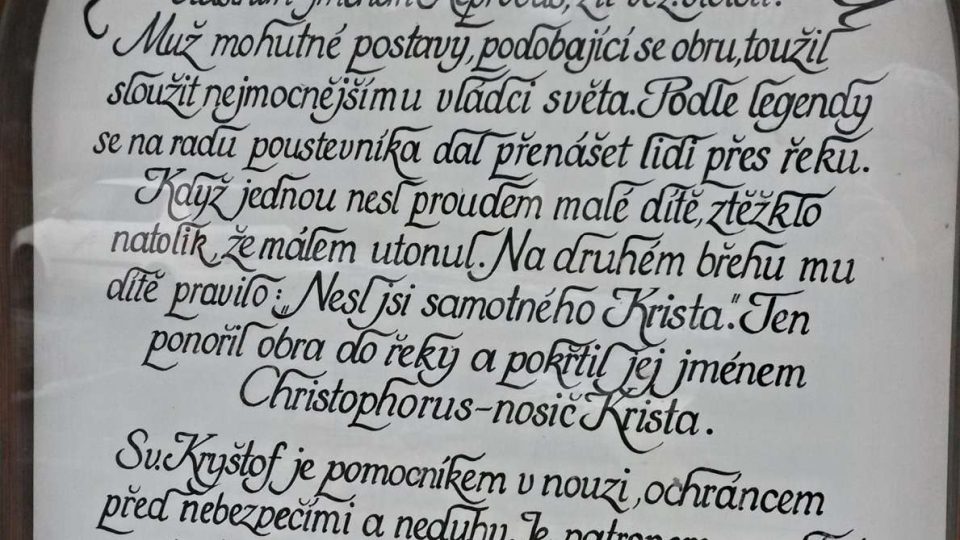 Vlastním jménem Reprobus, žil ve 3. století.
Muž mohutné postavy, podobající se obru, toužil
sloužit nejmocnějšímu vládci světa. Podle legendy
se na radu poustevníka dal přenášet lidi přes řeku.
Když jednou nesl proudem malé dítě, ztěžklo
natolik, že málem utonul. Na druhém břehu mu
dítě pravilo: „Nesl jsi samotného Krista." Ten
ponořil obra do řeky a pokřtil jej jménem
Christophorus - nosič Krista.
Sv. Kryštof je pomocníkem v nouzi, ochráncem
před nebezpečími a neduhy. Je patronem